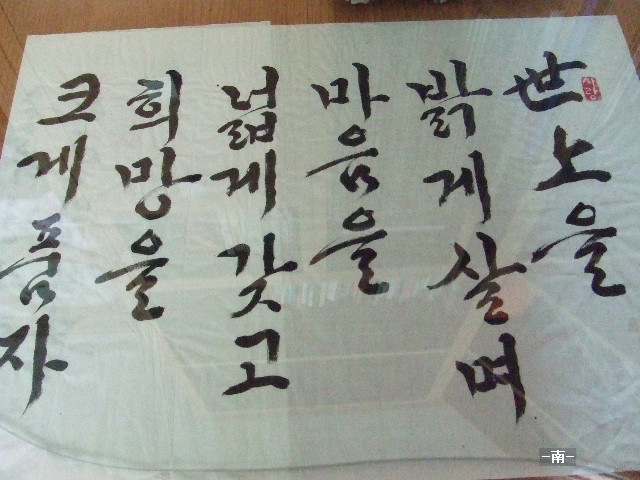 世上을
밝게 살며
마음을
넓게 갖고
희망을
크게 품자
사랑
-南-